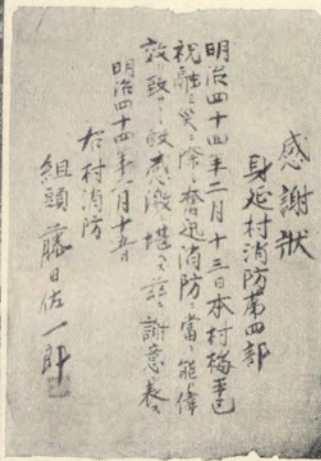 感謝狀
身延村消防第四部
明治四十四年二月十三日本村梅平ニ
祝融ノ災ニ際シ奮迅消防ニ當リ能ク偉
效ヲ致サレ感激ニ堪ヘス茲ニ謝意ヲ表ス
明治四十四年 月十五日
村消防
組頭 藤田佐一郎